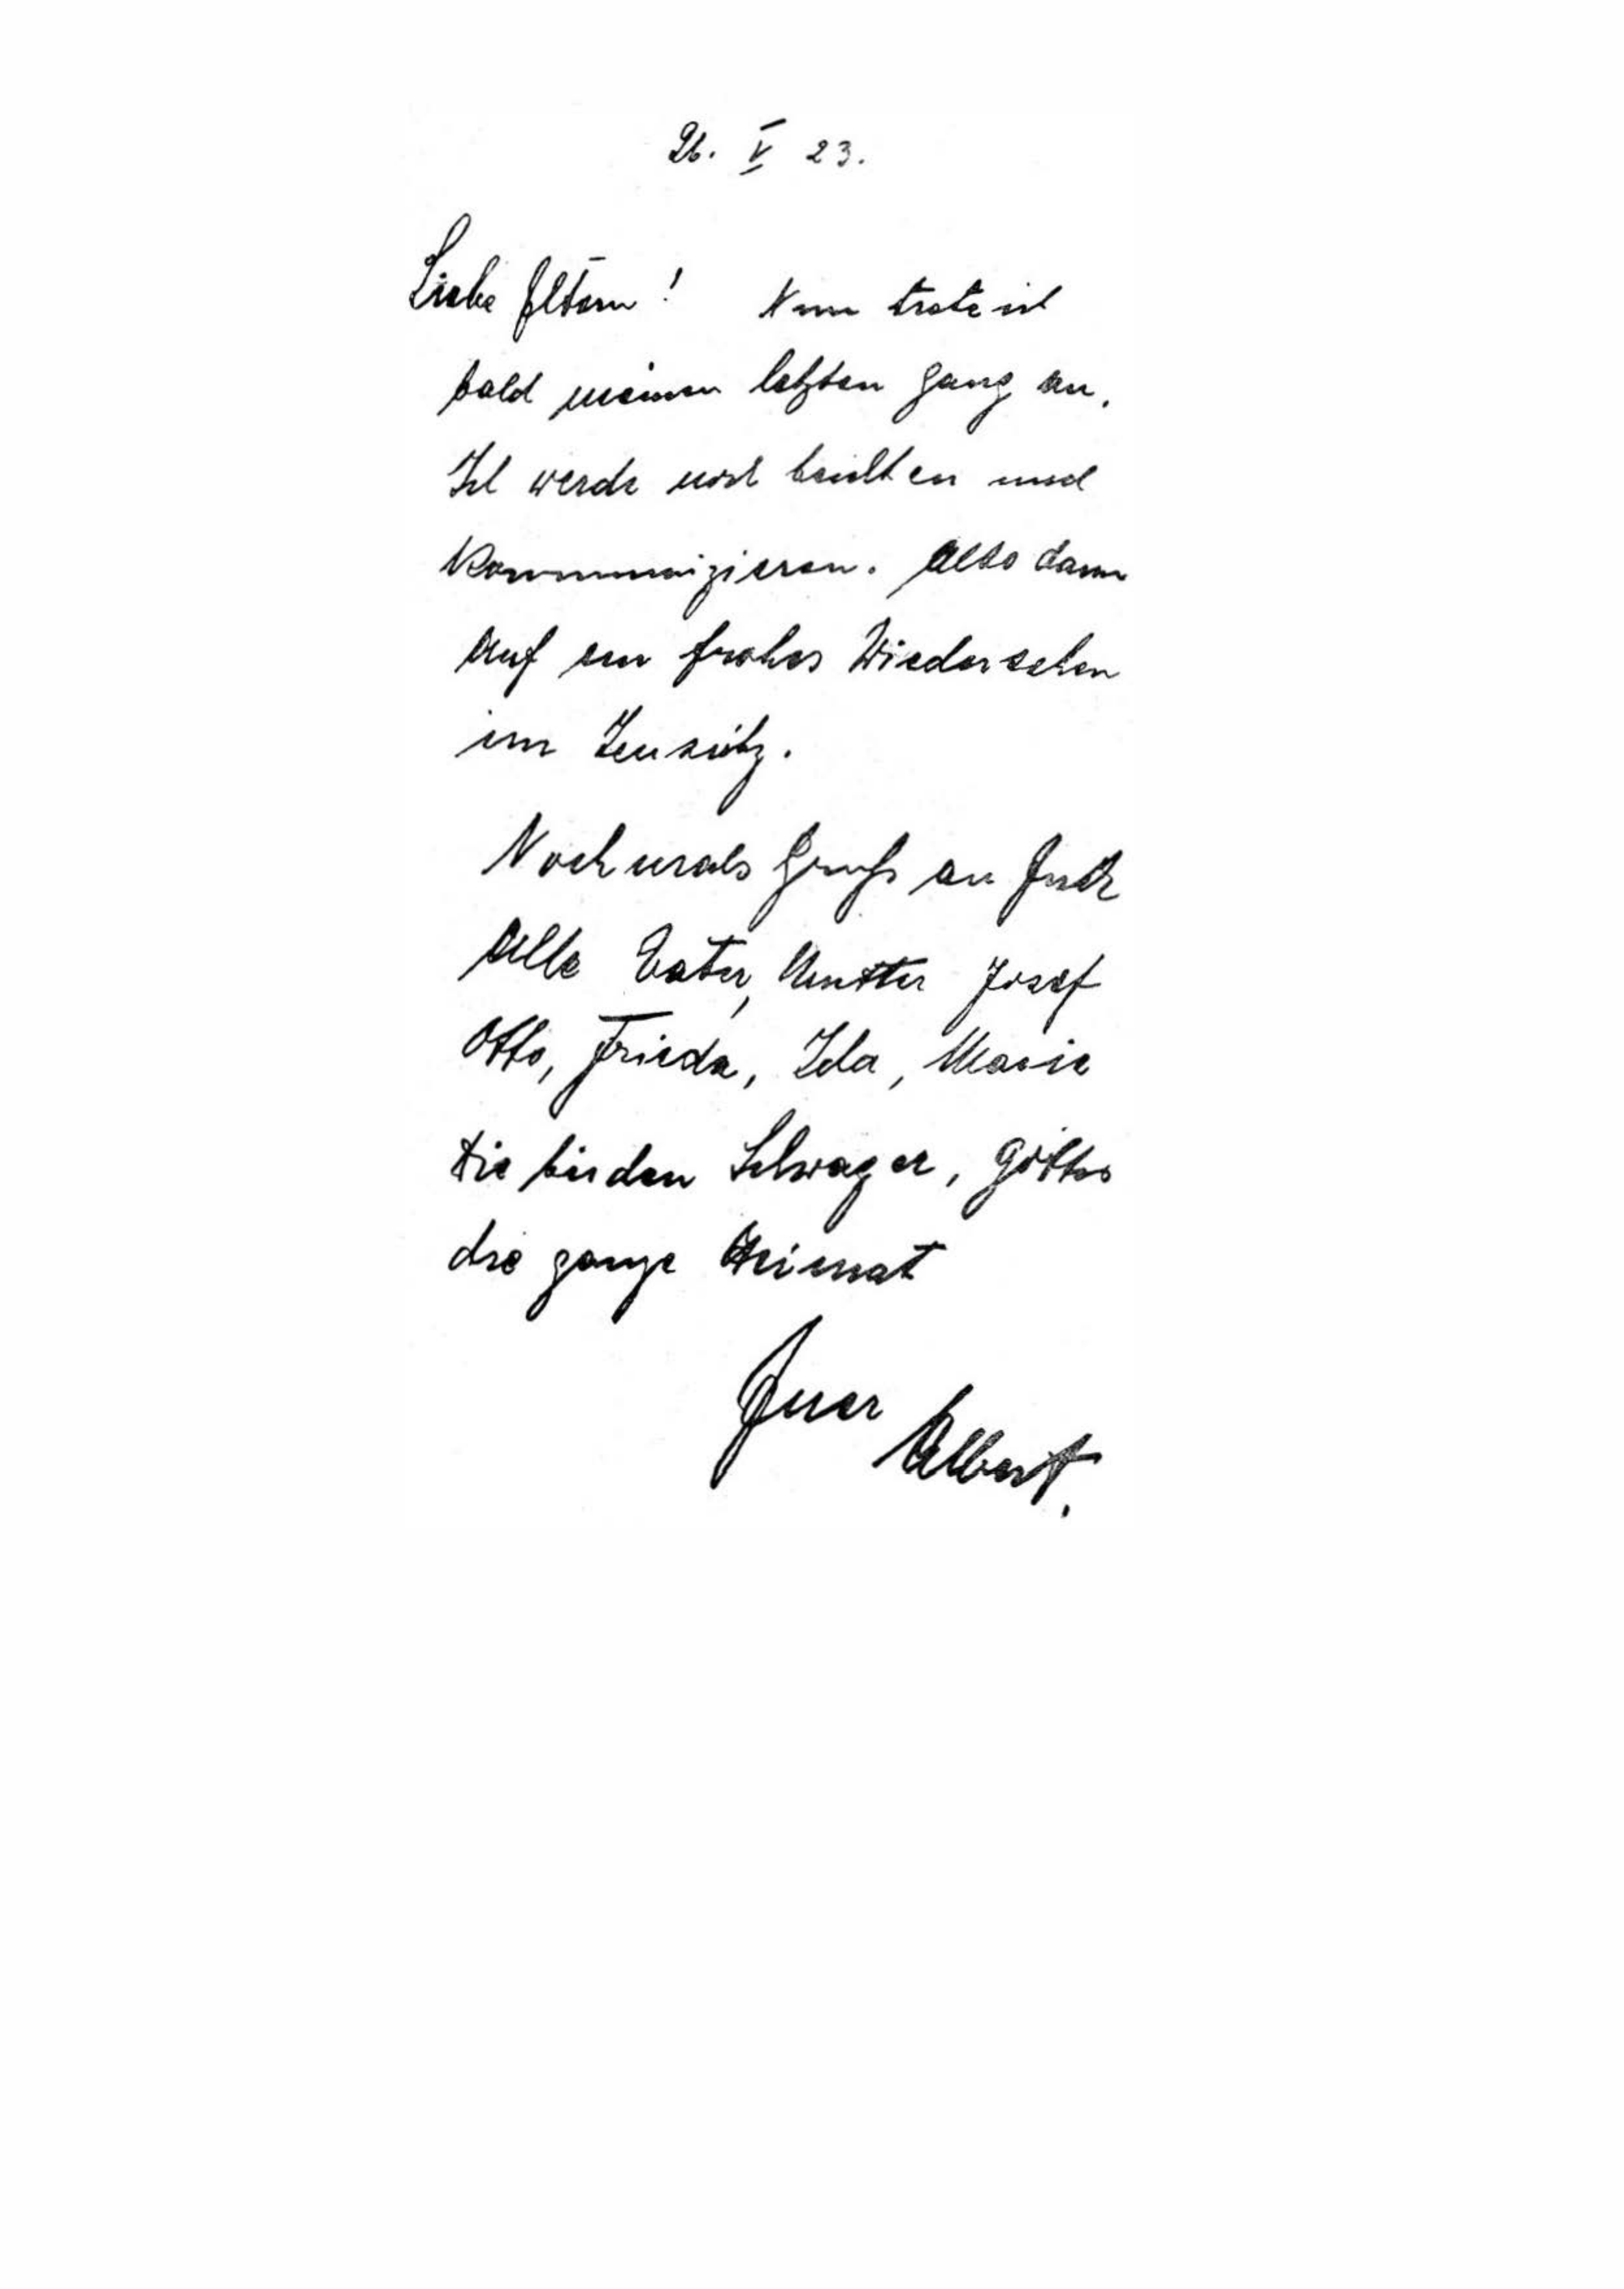 26. V 23.
Liebe Eltern! Nun trete ich
bald meinen letzten Gang an.
Ich werde noch beichten und
Kommunizieren. Also dann
Auf ein frohes Wiedersehen
im Jenseitz.
Nochmals Gruß an Euch
Alle Vater, Mutter Josef
Otto, Frieda, Ida, Marie
die beiden Schwager, Götte
die ganze Heimat
Euer
Albert.